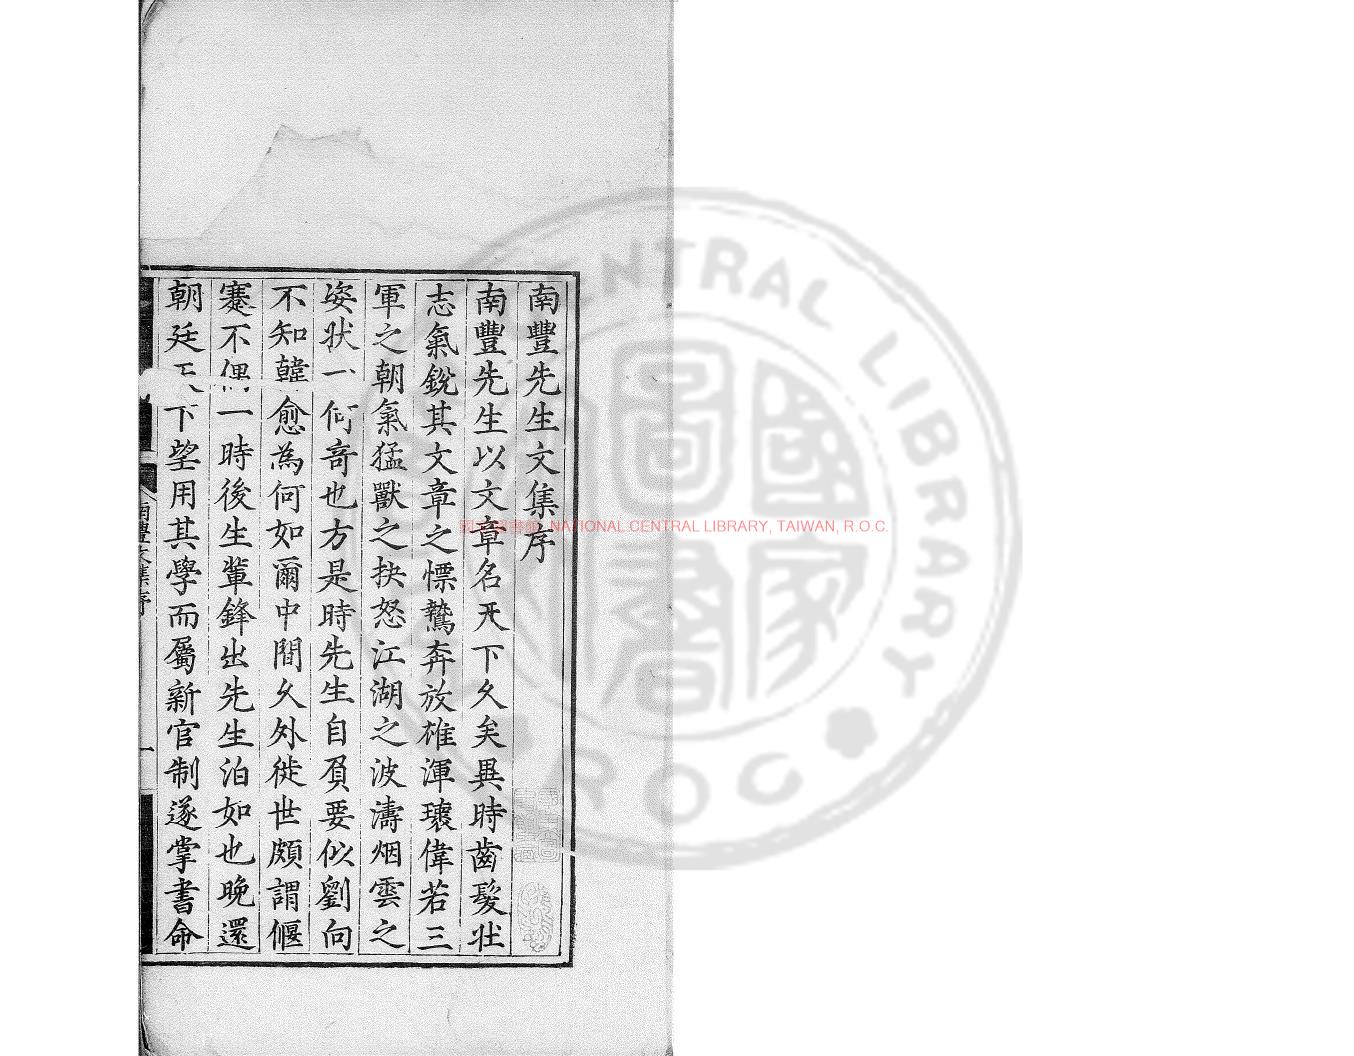 南豐先生文集序
南豐先生以文章名天下久矣異時齒髮壯
志氣銳其文章之慓鷙奔放雄渾瓌偉若三
軍之朝氣猛獸之抉怒江湖之波濤烟雲之
姿狀一何奇也方是時先生自負要似劉向
不知韓愈為何如爾中間久外徙世頗謂偃
蹇不偶一時後生輩鋒出先生泊如也晚還
朝廷天下望用其學而屬新官制遂掌書命
南豐文集序
一
NATIONAL CENTRAL LIBRARY, TAIWAN, R.O.C.
CENTRAL LIBRARY
R O C
國家圖書館